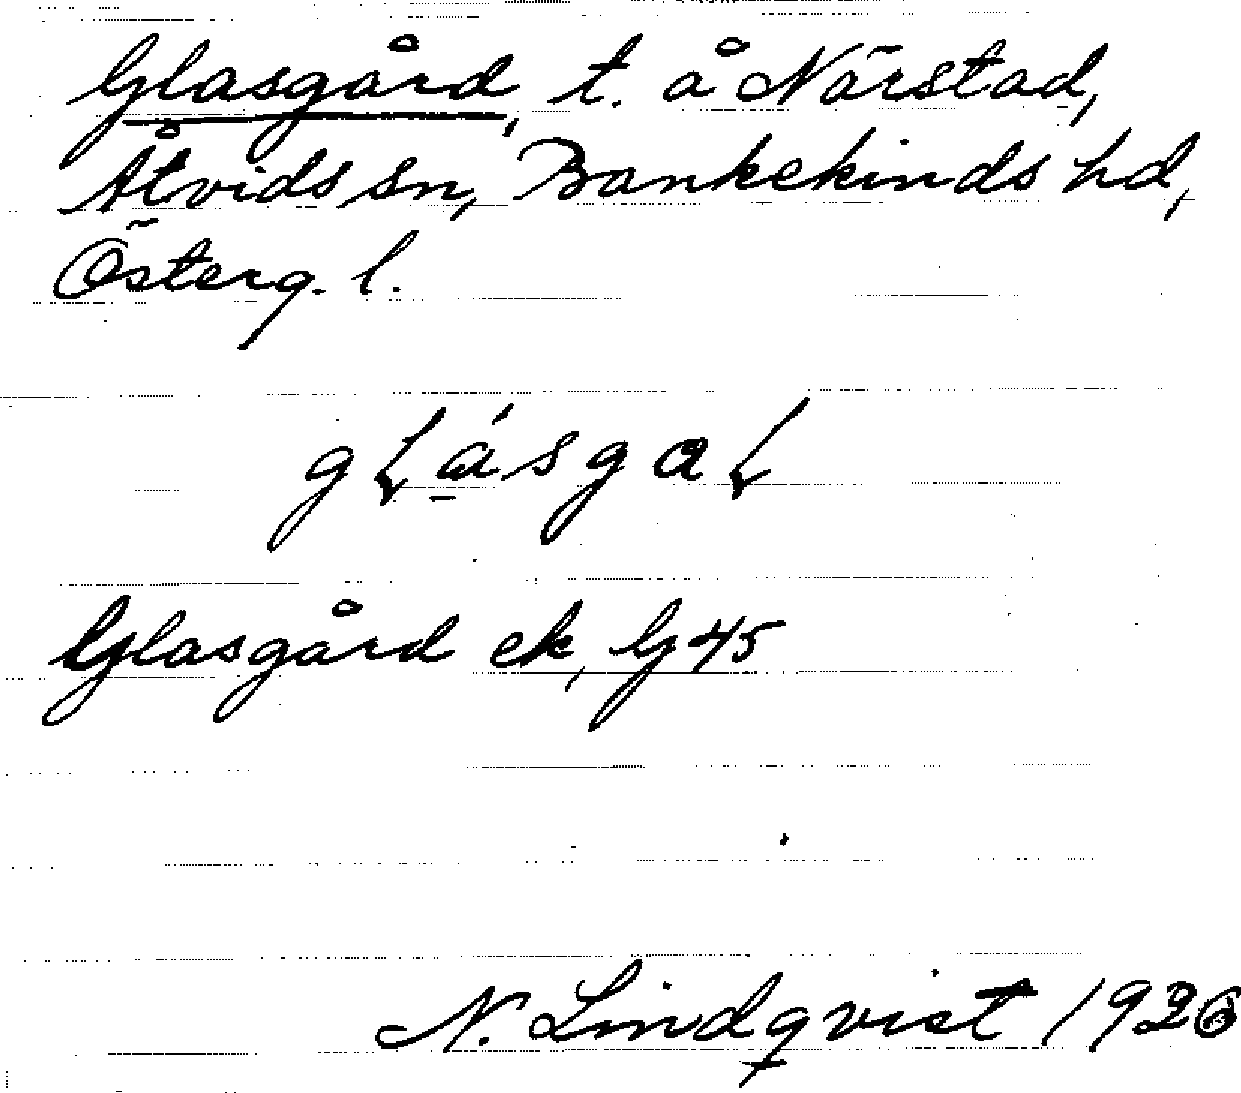 Glasgård, t. å Närstad,
Åtvids sn, Bankekinds hd,
Österg. l.
gLásgaL
Glasgård ek, G 45
N. Lindqvist 1926